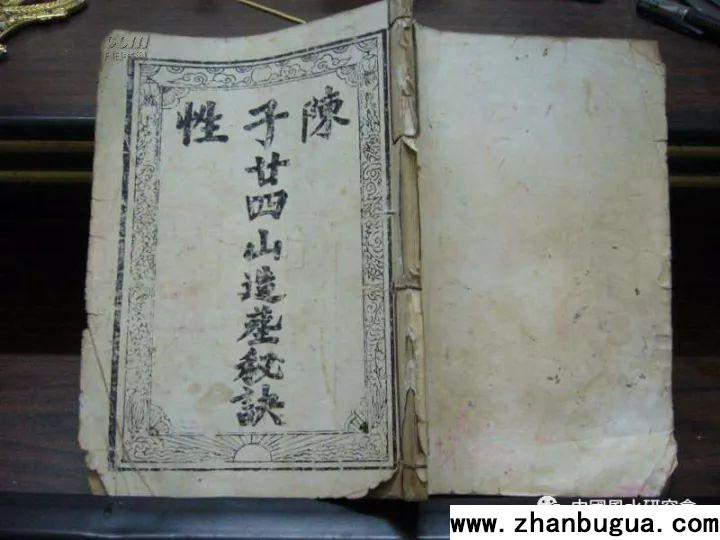 陳子性
廿四山造塟秘訣
中國風水研究會
www.zhanbugua.com